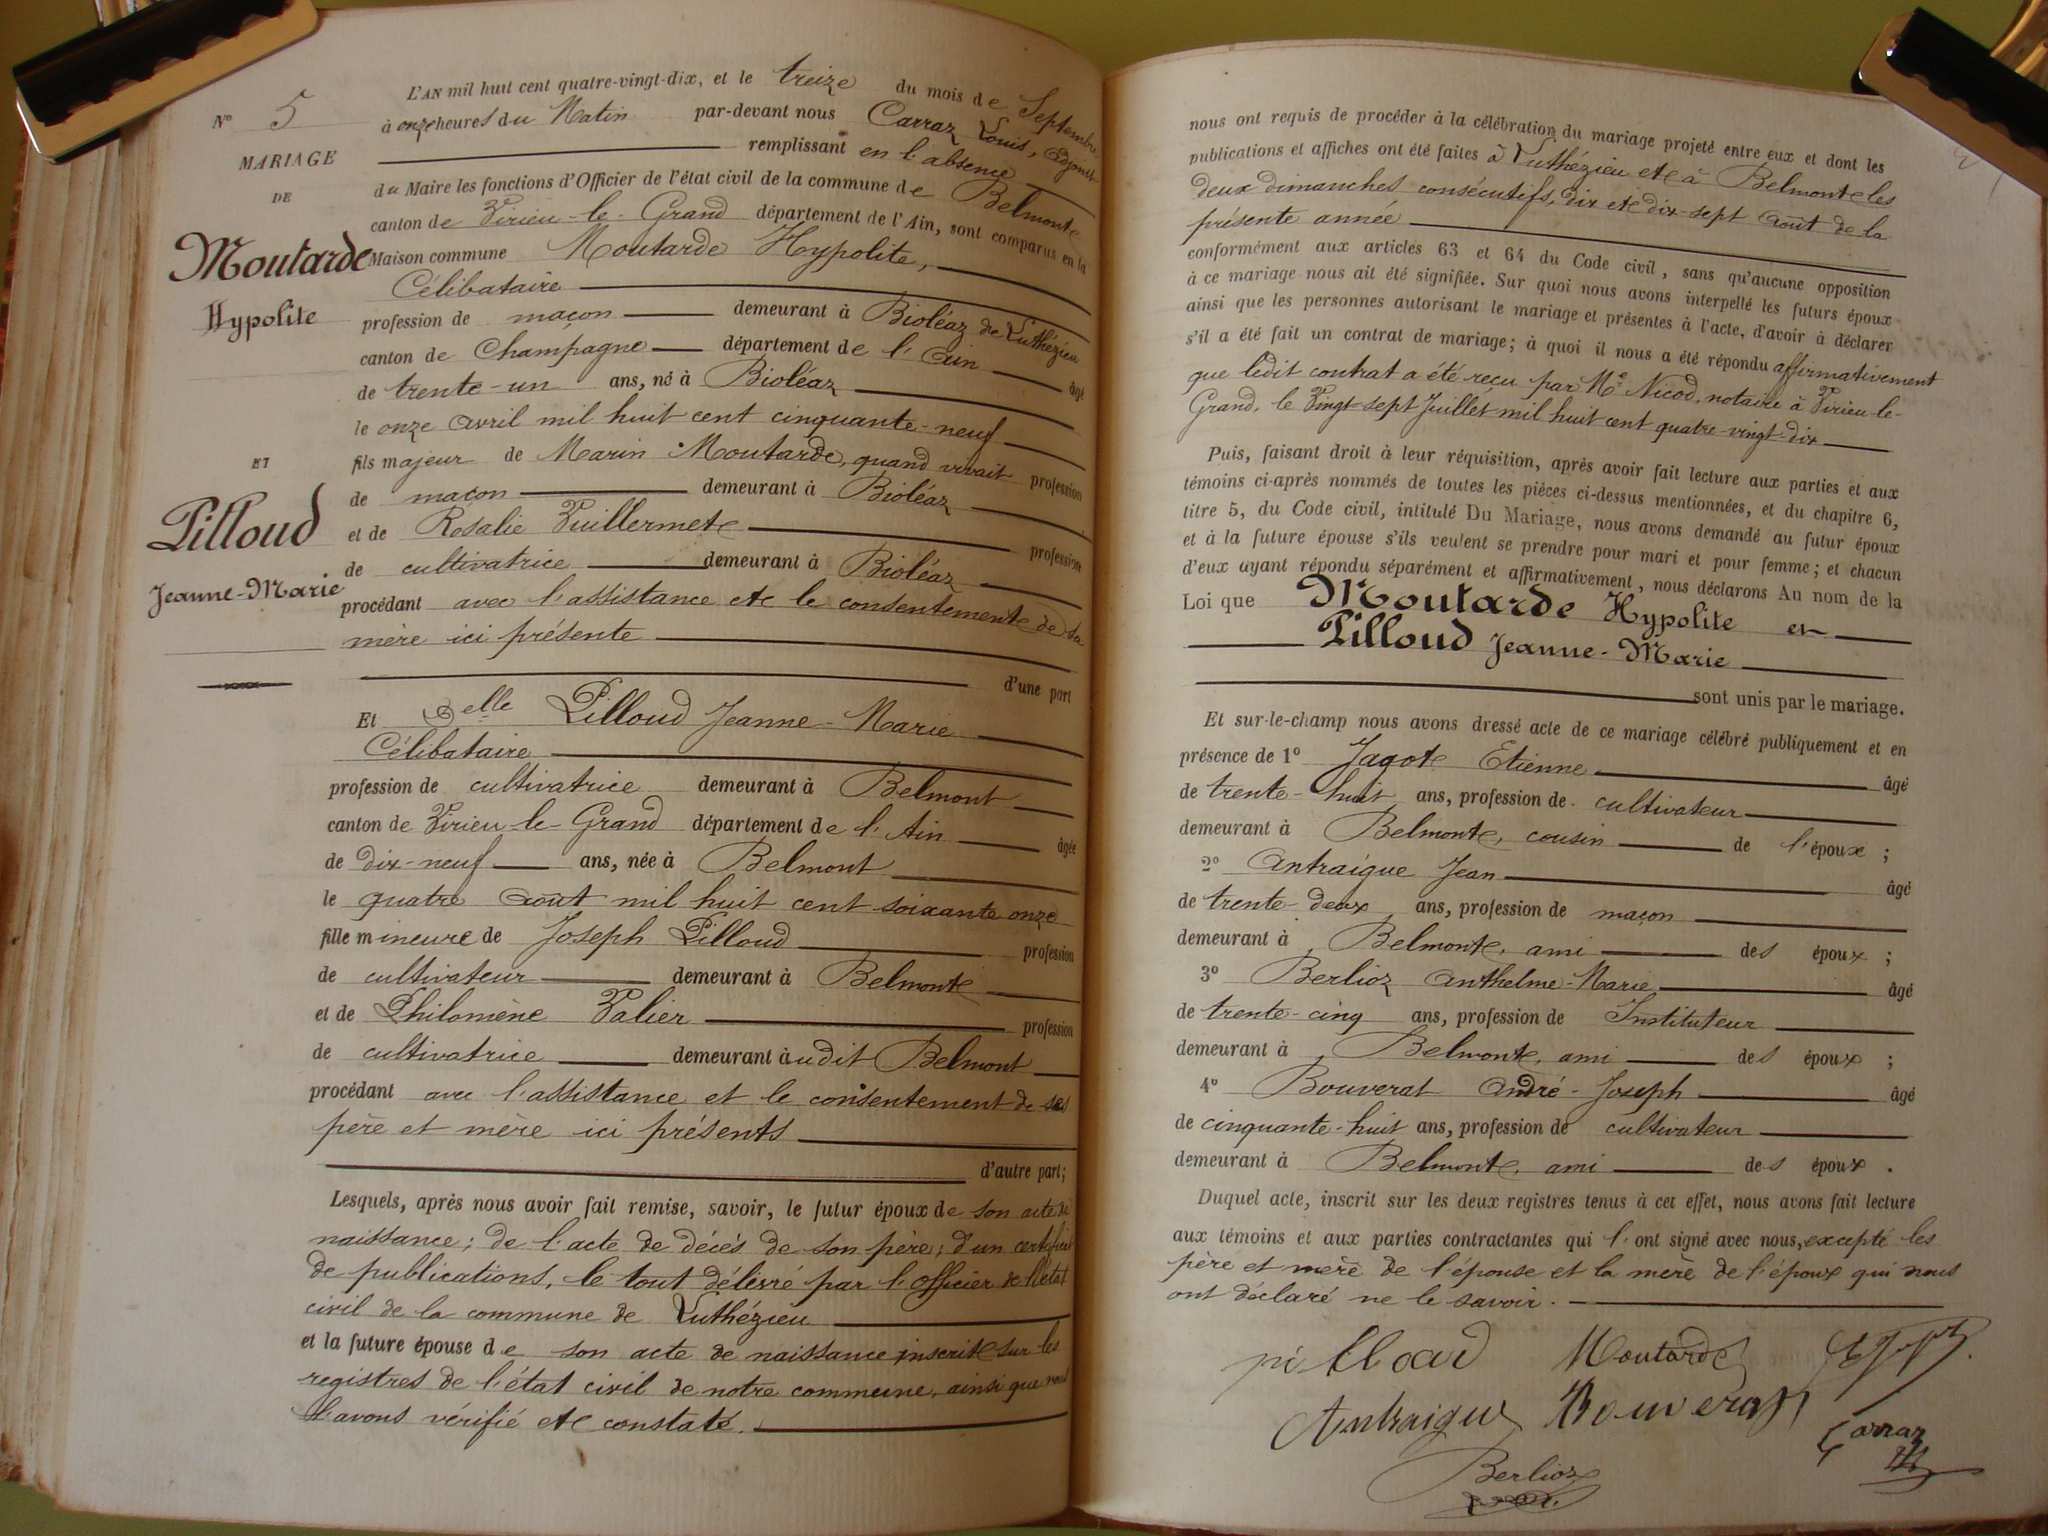 N° 5
MARIAGE
DE
Moutarde
Hypolite
ET
Pilloud
Jeanne-Marie
L'AN mil huit cent quatre-vingt-dix, et le treize du mois de Septembre
à onze heures du Matin par-devant nous Carraz Louis, Adjoint
remplissant en l'absence
du Maire les fonctions d'Officier de l'état civil de la commune de Belmont
canton de Virieu-le-Grand département de l'Ain, sont comparus en la
Maison commune Moutarde Hypolite,
Célibataire
profession de maçon demeurant à Bioléaz de Luthézieu
canton de Champagne département de l'Ain âgé
de trente-un ans, né à Bioléaz
le onze avril mil huit cent cinquante-neuf
fils majeur de Marin Moutarde, quand vivait profession
de maçon demeurant à Bioléaz
et de Rosalie Vuillermet profession
de cultivatrice demeurant à Bioléaz
procédant avec l'assistance et le consentement de sa
mère ici présente
d'une part
Et Delle Pilloud Jeanne-Marie
Célibataire
profession de cultivatrice demeurant à Belmont
canton de Virieu-le-Grand département de l'Ain âgée
de dix-neuf ans, née à Belmont
le quatre août mil huit cent soixante onze
fille mineure de Joseph Pilloud profession
de cultivateur demeurant à Belmont
et de Philomène Valier profession
de cultivatrice demeurant audit Belmont
procédant avec l'assistance et le consentement de ses
père et mère ici présents
d'autre part;
Lesquels, après nous avoir fait remise, savoir, le futur époux de son acte de
naissance; de l'acte de décés de son père; d'un certificat
de publications, le tout délivré par l'officier de l'état
civil de la commune de Luthézieu
et la future épouse de son acte de naissance inscrit sur les
registres de l'état civil de notre commune, ainsi que nous
l'avons vérifié et constaté.
nous ont requis de procéder à la célébration du mariage projeté entre eux et dont les
publications et affiches ont été faites à Luthézieu et à Belmont les
deux dimanches consécutifs, dix et dix-sept août de la
présente année
conformément aux articles 63 et 64 du Code civil, sans qu'aucune opposition
à ce mariage nous ait été signifiée. Sur quoi nous avons interpellé les futurs époux
ainsi que les personnes autorisant le mariage et présentes à l'acte, d'avoir à déclarer
s'il a été fait un contrat de mariage; à quoi il nous a été répondu affirmativement
que ledit contrat a été reçu par Me Nicod, notaire à Virieu-le-
Grand, le Vingt-sept Juillet mil huit cent quatre-vingt-dix
Puis, faisant droit à leur réquisition, après avoir fait lecture aux parties et aux
témoins ci-après nommés de toutes les pièces ci-dessus mentionnées, et du chapitre 6,
titre 5, du Code civil, intitulé Du Mariage, nous avons demandé au futur époux
et à la future épouse s'ils veulent se prendre pour mari et pour femme; et chacun
d'eux ayant répondu séparément et affirmativement, nous déclarons Au nom de la
Loi que Moutarde Hypolite et
Pilloud Jeanne-Marie
sont unis par le mariage.
Et sur-le-champ nous avons dressé acte de ce mariage célébré publiquement et en
présence de 1° Jagot Etienne âgé
de trente-huit ans, profession de cultivateur
demeurant à Belmont, cousin de l'époux ;
2° Antraigue Jean âgé
de trente-deux ans, profession de maçon
demeurant à Belmont, ami des époux ;
3° Berlioz Anthelme-Marie âgé
de trente-cinq ans, profession de Instituteur
demeurant à Belmont, ami des époux ;
4° Bouverat André-Joseph âgé
de cinquante-huit ans, profession de cultivateur
demeurant à Belmont, ami des époux .
Duquel acte, inscrit sur les deux registres tenus à cet effet, nous avons fait lecture
aux témoins et aux parties contractantes qui l'ont signé avec nous, excepté les
père et mère de l'épouse et la mère de l'époux qui nous
ont déclaré ne le savoir.
pilloud Moutarde
Antraigue Bouverat
Carraz
Berlioz